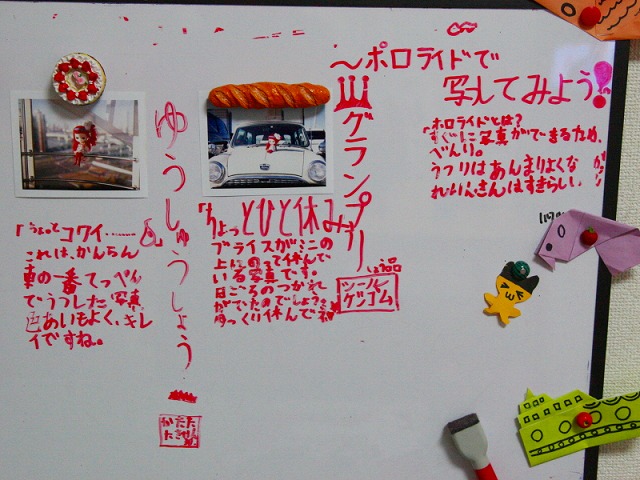 ～ポロライドで
写してみよう!
ポロライドとは?
「すぐに写真ができるため、
べんり。
うつりはあんまりよくな
グランプリ
「ちょっとひと休み」
ブライスがミニの
上にのって休んで
いる写真です。
日ごろのつかれ
がでたのでしょう?
ゆっくり休んでネ
しょう品
シール
ケシゴム
ゆうしゅうしょう
コワイ………
これは、かんらん
車の一番てっぺん
でうつした写真
色あいもよく、キレ
イですね。